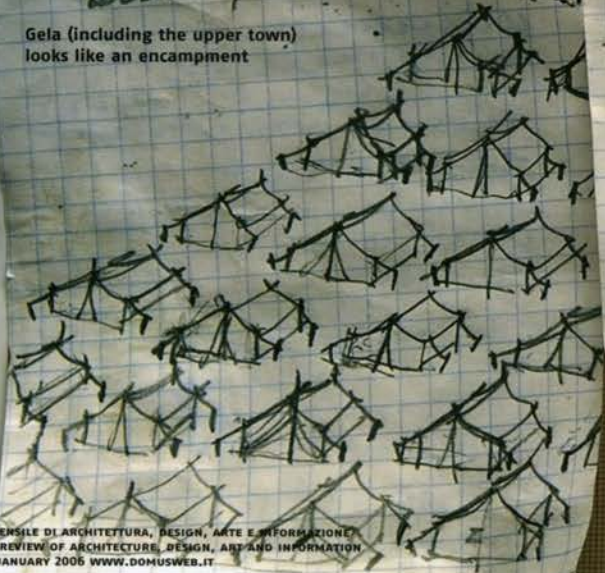 Gela (including the upper town)
looks like an encampment
ENSILE DI ARCHITETTURA, DESIGN, ARTE E INFORMAZIONE
REVIEW OF ARCHITECTURE, DESIGN, ART AND INFORMATION
JANUARY 2006 WWW.DOMUSWEB.IT